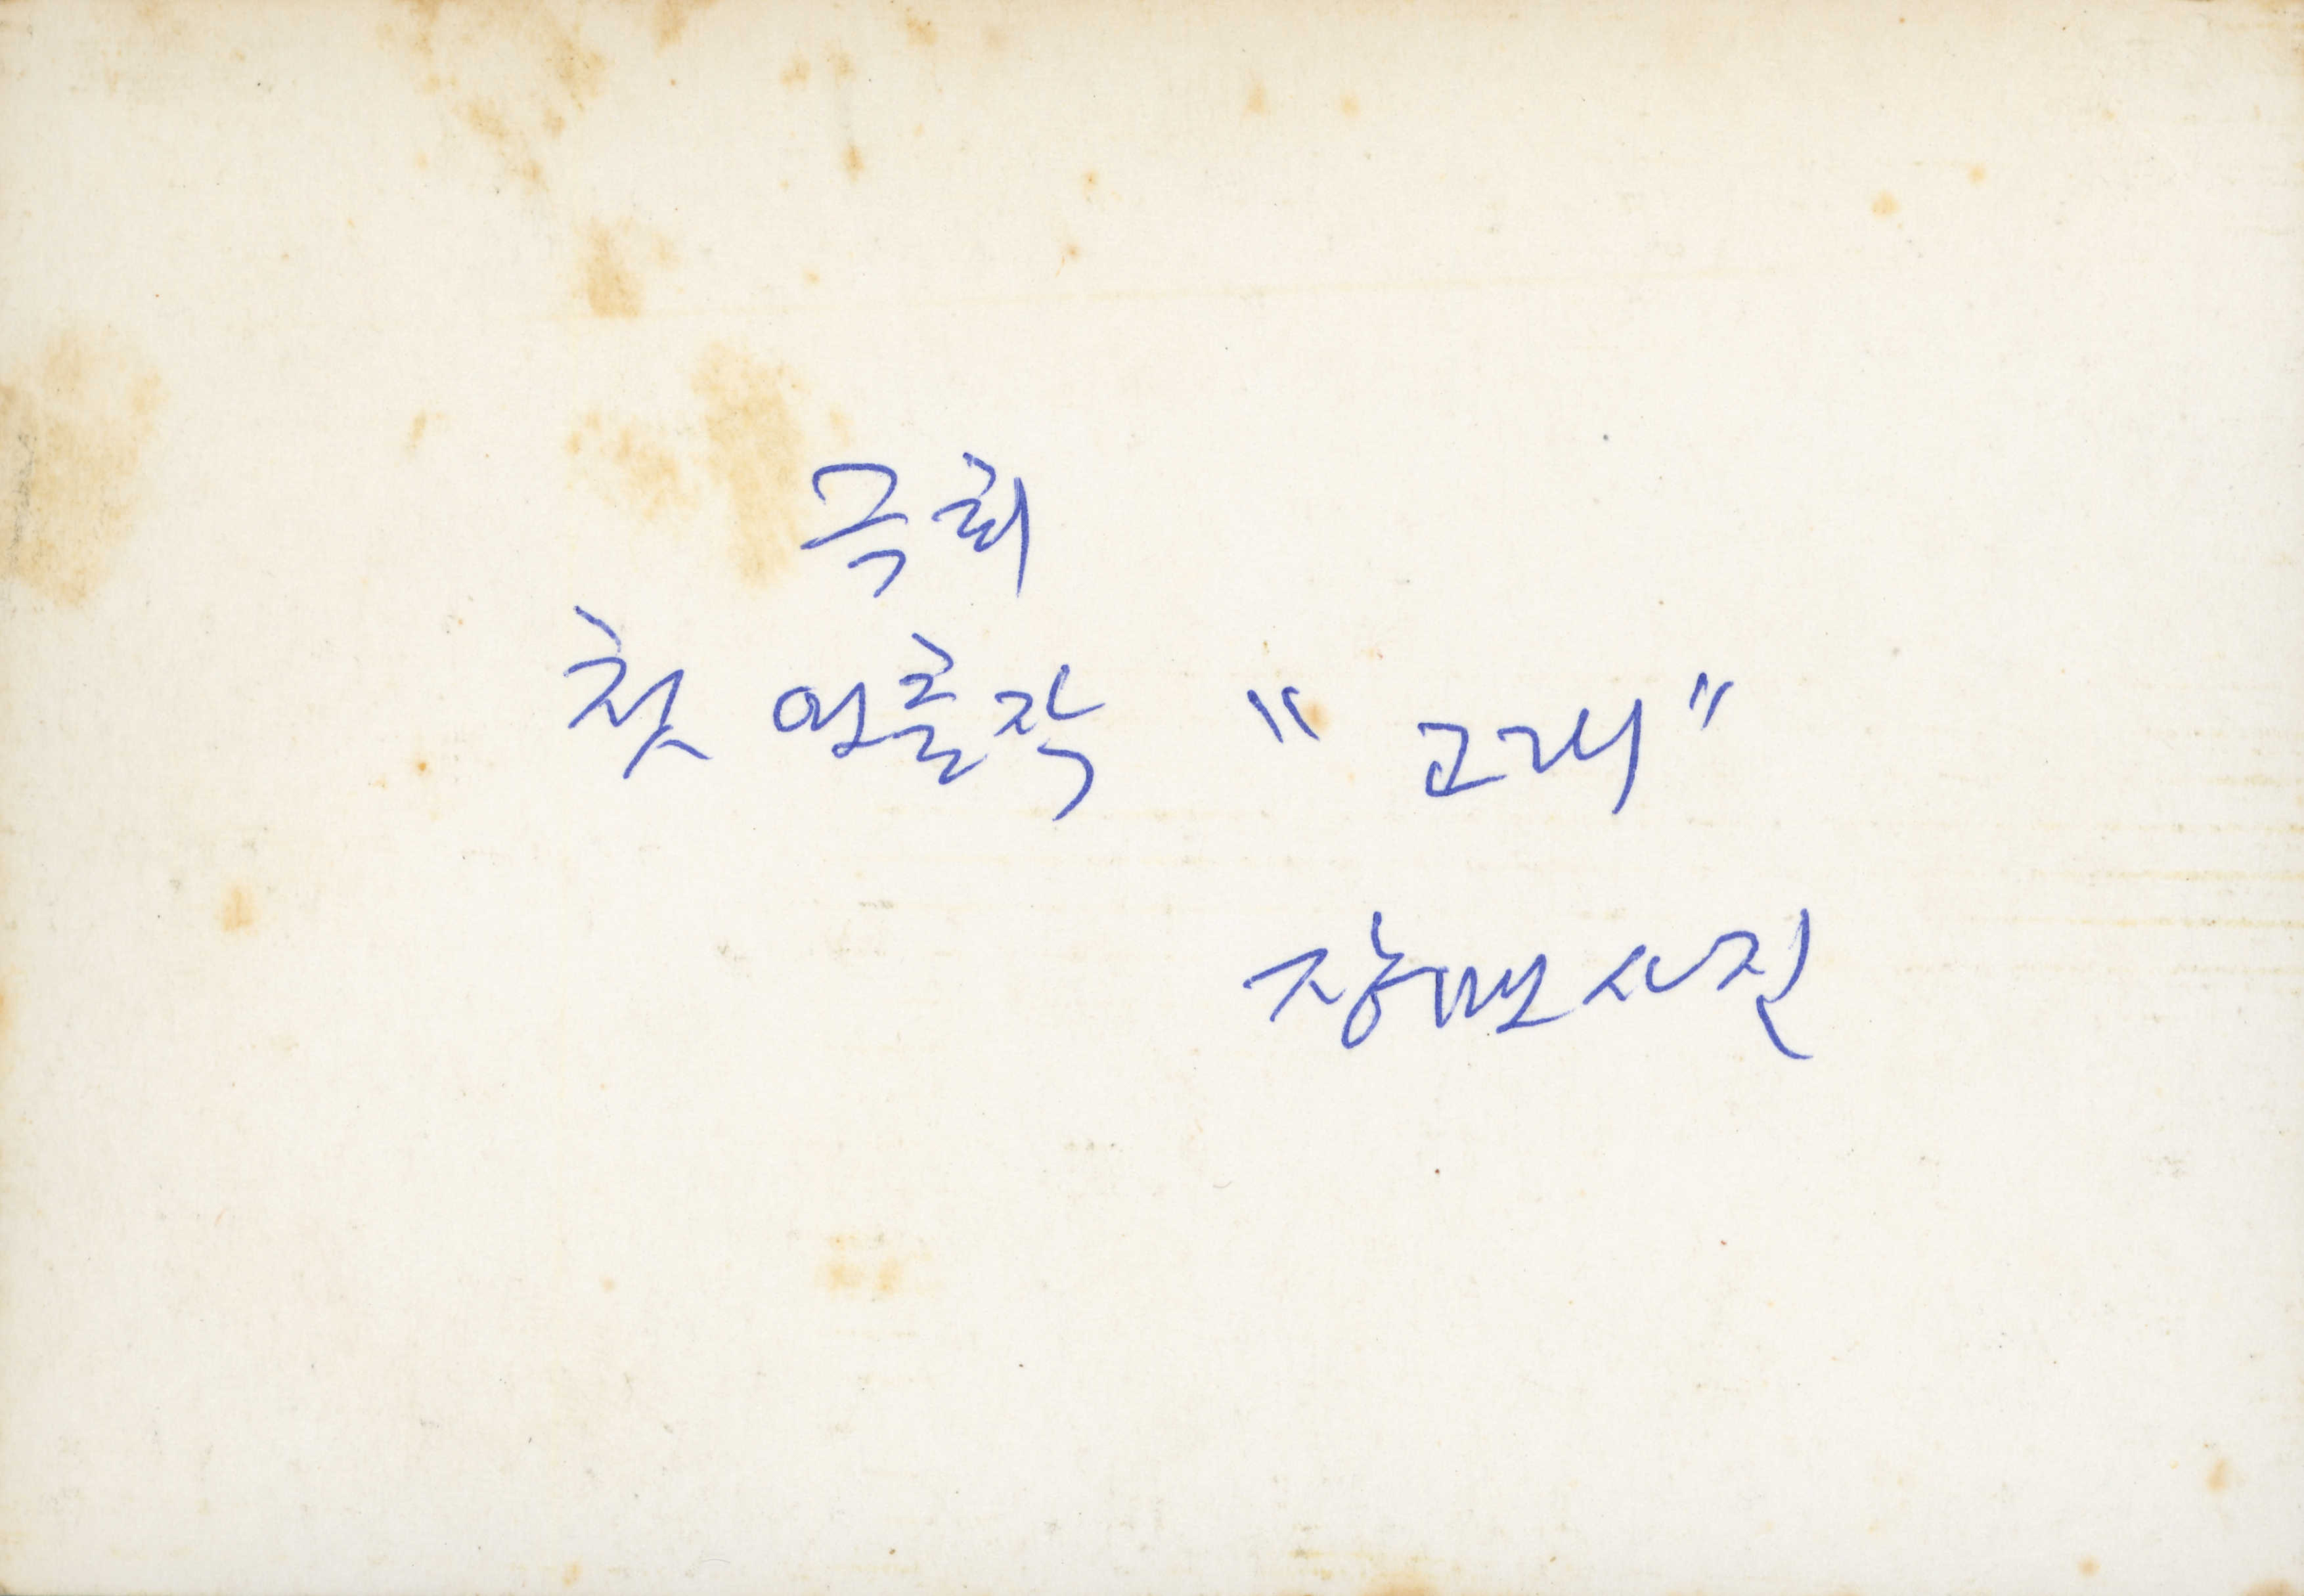 극회
첫 연출작 "고래"
장면사진